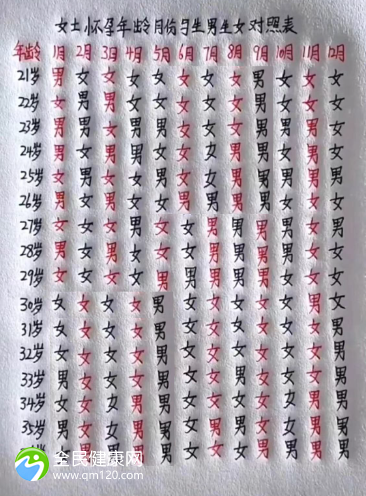 女士怀孕年龄月份与生男生女对照表
年龄 1月 2月 3月 4月 5月 6月 7月 8月 9月 10月 11月 12月
21岁 男 女 女 女 女 女 女 女 男 女 女 女
22岁 男 男 女 男 男 女 男 女 女 男 女 女
23岁 男 男 女 男 男 女 男 女 男 男 男 女
24岁 男 女 男 男 女 男 女 男 男 男 男 女
25岁 女 男 女 男 女 女 女 男 男 男 男 男
26岁 男 女 男 女 女 男 女 男 男 男 男 男
27岁 女 女 女 男 女 女 男 男 男 女 男 男
28岁 男 女 男 女 女 女 男 男 男 男 女 女
29岁 女 女 女 女 男 男 男 男 男 男 女 女
30岁 女 女 女 女 男 女 女 女 女 女 男 女
31岁 女 女 女 女 男 女 女 女 女 女 女 男
32岁 女 女 女 女 男 女 女 女 女 女 女 男
33岁 男 女 女 女 男 女 女 女 女 女 女 男
34岁 男 女 女 男 男 女 女 女 女 女 男 男
35岁 男 女 女 男 男 女 女 男 女 女 男 男
全民健康网
www.qm120.com